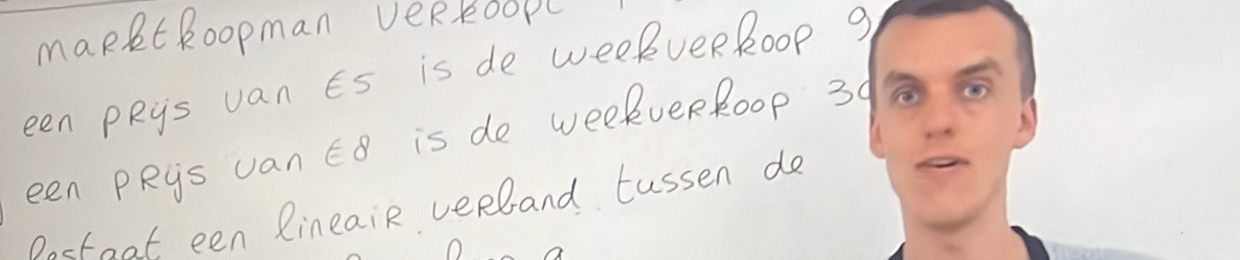 marktkoopman verkoopt
een prijs van €5 is de weekverkoop
een prijs van €8 is de weekverkoop
bestaat een lineair verband tussen de